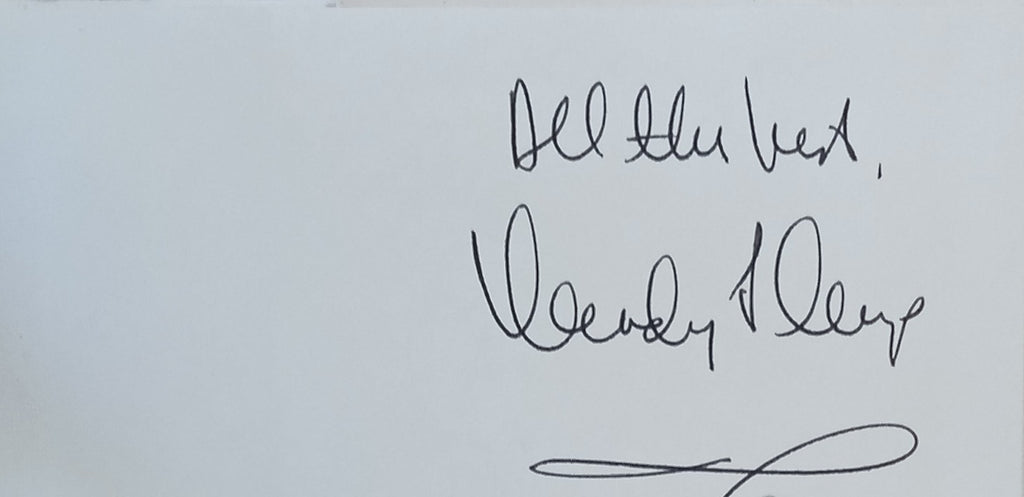 All the best,
Wendy